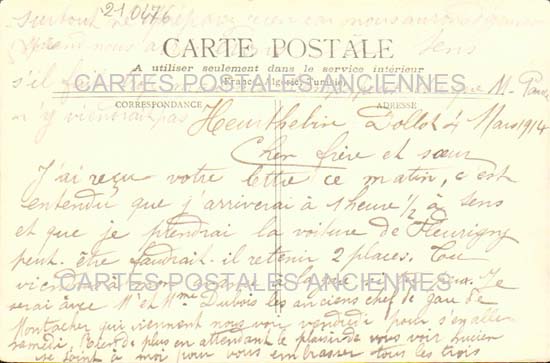 21 0476
surtout ne préparez rien car nous aurons
quand nous Sens
CARTE POSTALE
A utiliser seulement dans le service intérieur
s'il que M. 
(France, Algérie, Tunisie)
CARTES POSTALES ANCIENNES
n'y viendrait pas
CORRESPONDANCE
ADRESSE
Heurthebise Dollot 4 Mars 1914
Cher frère et sœur
J'ai reçu votre lettre ce matin, c'est
entendu que j'arriverai à 1 heure ½ à Sens
et que je prendrai la voiture de Fleurigny
peut-être faudrait-il retenir 2 places. Tu
viendras à la gare Je
CARTES POSTALES ANCIENNES
serai avec Mr et Mme Dubois les anciens chef de gare de
Montacher qui viennent nous voir vendredi pour s'en aller
samedi. Rien de plus en attendant le plaisir de vous voir Lucien
se joint à moi pour vous embrasser tous les trois